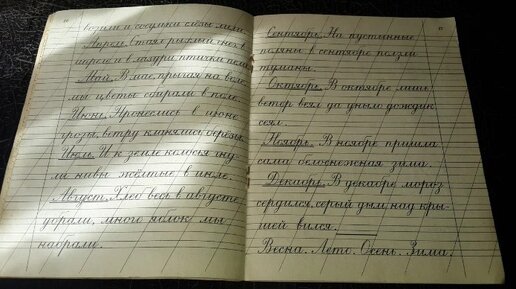 Апрель. Стаял рыхлый снег в
апреле и в лазури птички пели.
Май. В мае, прыгая на воле
мы цветы сбирали в поле.
Июнь. Пронеслись в июне
грозы, ветру кланялись берёзы.
Июль. И к земле колосья гну-
ли нивы жёлтые в июле.
Август. Хлеб весь в августе
убрали, много яблок мы
набрали.
Сентябрь. На пустынные
поляны в сентябре ползли
туманы.
Октябрь. В октябре лишь
ветер веял да уныло дождик
сеял.
Ноябрь. В ноябре пришла
сама белоснежная зима.
Декабрь. В декабре мороз
сердился, серый дым над кры-
шей вился.
Весна. Лето. Осень. Зима.